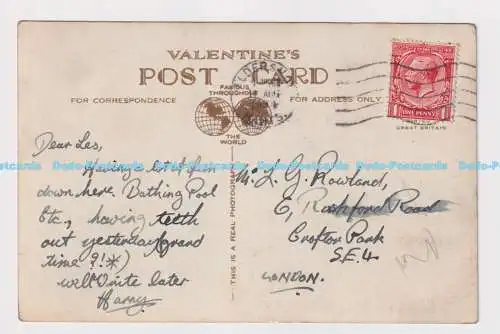 VALENTINE'S
POST CARD
FAMOUS
THROUGHOUT
FOR CORRESPONDENCE
FOR ADDRESS ONLY
THE
WORLD
ONE PENNY
GREAT BRITAIN
THIS IS A REAL PHOTOGRAPH
Dear Les,
Having a lot of fun
down here. Bathing Pool
Etc., having teeth
out yesterday (grand
time ?!*)
will write later
Harry
Mr L. G. Rowland,
6, Rushford Road
Crofton Park
S.E.4
LONDON.
Do-Postcards